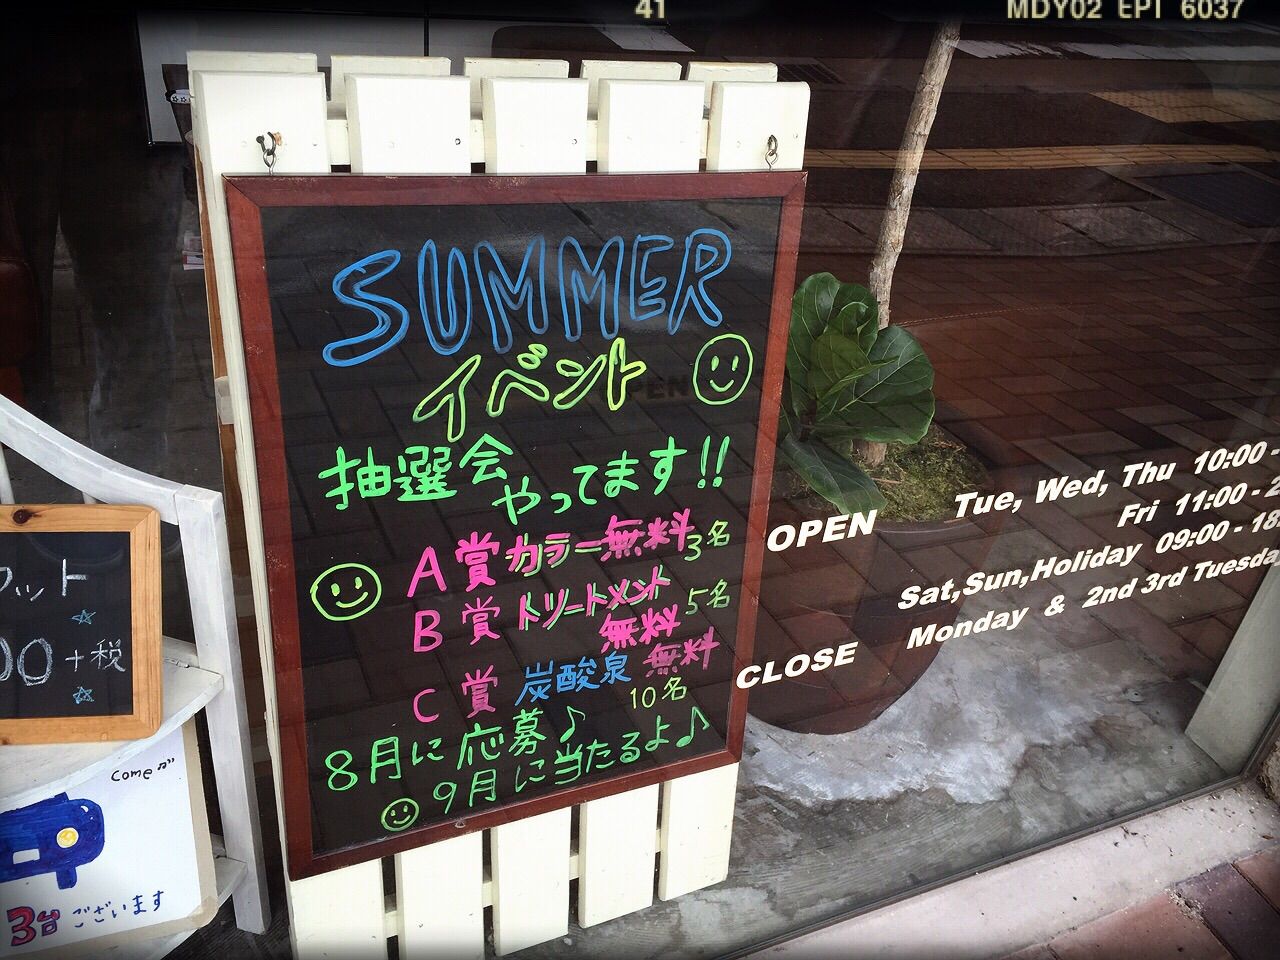 41
MDY02 EPI 6037
SUMMER
イベント
抽選会
やってます!!
A賞 カラー無料 3名
B賞 トリートメント
無料 5名
C賞 炭酸泉 無料
10名
8月に応募♪
9月に当たるよ♪
OPEN Tue, Wed, Thu 10:00 -
Fri 11:00 - 2
Sat,Sun,Holiday 09:00 - 18
CLOSE Monday & 2nd 3rd Tuesday
ット
00+税
come
3台ございます